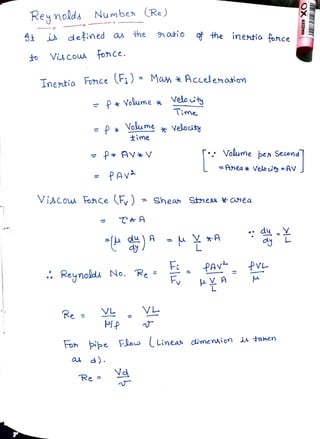 Reynolds Number (Re)
It is defined as the ratio of the inertia force
to Viscous force.
Inertia Force (Fi) = Mass * Acceleration
= ρ * Volume * Velocity/Time
= ρ * Volume/time * Velocity
= ρ * AV * V [∵ Volume per Second
= ρAV² = Area * Velocity = AV]
Viscous Force (Fv) = Shear Stress * area
= τ * A
= (μ du/dy) A = μ V/L * A ∵ du/dy = V/L
∴ Reynolds No. Re = Fi/Fv = ρAV²/(μ V/L A) = ρVL/μ
Re = VL/(μ/ρ) = VL/ν
For pipe Flow (Linear dimension is taken
as d).
Re = Vd/ν